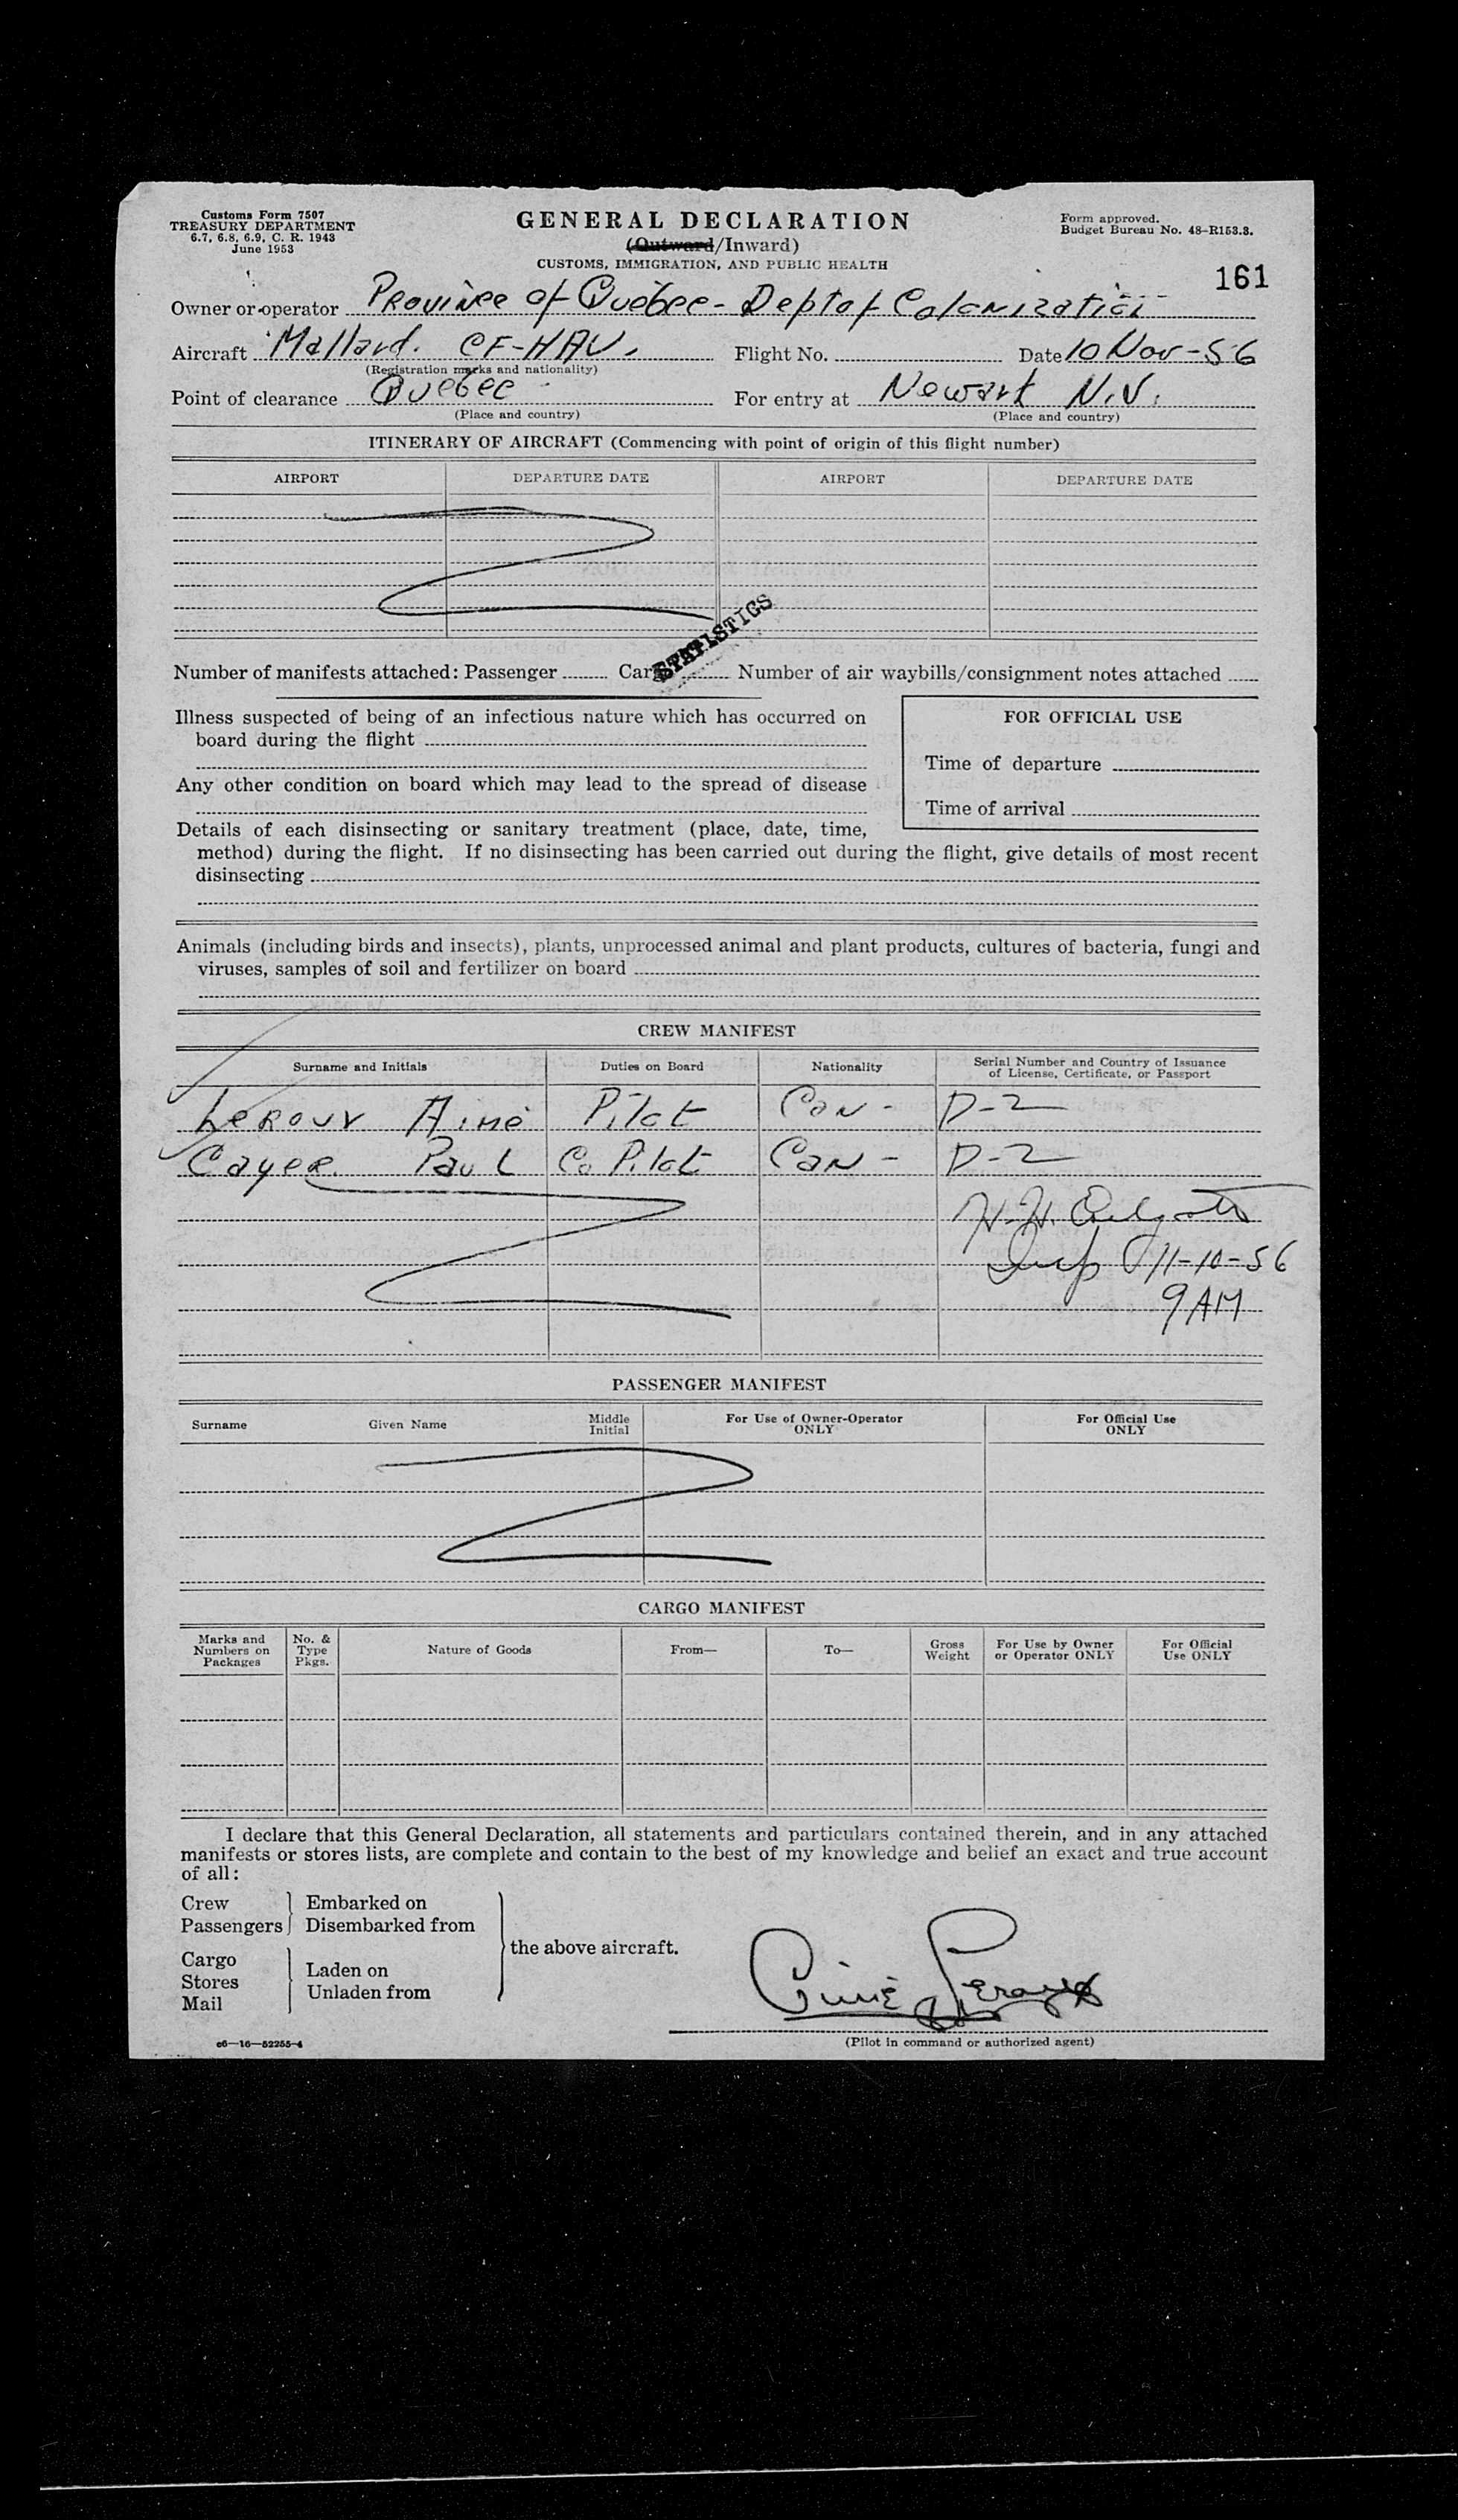 Customs Form 7507
TREASURY DEPARTMENT
6.7, 6.8, 6.9, C. R. 1943
June 1953
GENERAL DECLARATION
(Outward/Inward)
CUSTOMS, IMMIGRATION, AND PUBLIC HEALTH
Form approved.
Budget Bureau No. 48-R153.3.
161
Owner or operator Province of Quebec - Dept of Colonization
Aircraft Mallard. CF-HAV. Flight No. Date 10 Nov-56
(Registration marks and nationality)
Point of clearance Quebec For entry at Newark N.J.
(Place and country) (Place and country)
ITINERARY OF AIRCRAFT (Commencing with point of origin of this flight number)
AIRPORT DEPARTURE DATE AIRPORT DEPARTURE DATE
STATISTICS
Number of manifests attached: Passenger Cargo Number of air waybills/consignment notes attached
Illness suspected of being of an infectious nature which has occurred on
board during the flight
Any other condition on board which may lead to the spread of disease
FOR OFFICIAL USE
Time of departure
Time of arrival
Details of each disinsecting or sanitary treatment (place, date, time,
method) during the flight. If no disinsecting has been carried out during the flight, give details of most recent
disinsecting
Animals (including birds and insects), plants, unprocessed animal and plant products, cultures of bacteria, fungi and
viruses, samples of soil and fertilizer on board
CREW MANIFEST
Surname and Initials Duties on Board Nationality Serial Number and Country of Issuance
of License, Certificate, or Passport
Leroux Aimé Pilot Can- D-2
Cayer Paul Co Pilot Can- D-2
H.H.
Insp 11-10-56
9 AM
PASSENGER MANIFEST
Surname Given Name Middle
Initial For Use of Owner-Operator
ONLY For Official Use
ONLY
CARGO MANIFEST
Marks and
Numbers on
Packages No. &
Type
Pkgs. Nature of Goods From— To— Gross
Weight For Use by Owner
or Operator ONLY For Official
Use ONLY
I declare that this General Declaration, all statements and particulars contained therein, and in any attached
manifests or stores lists, are complete and contain to the best of my knowledge and belief an exact and true account
of all:
Crew Embarked on
Passengers Disembarked from
the above aircraft.
Cargo
Stores Laden on
Mail Unladen from
Aimé Leroux
(Pilot in command or authorized agent)
c6—16—52255-4